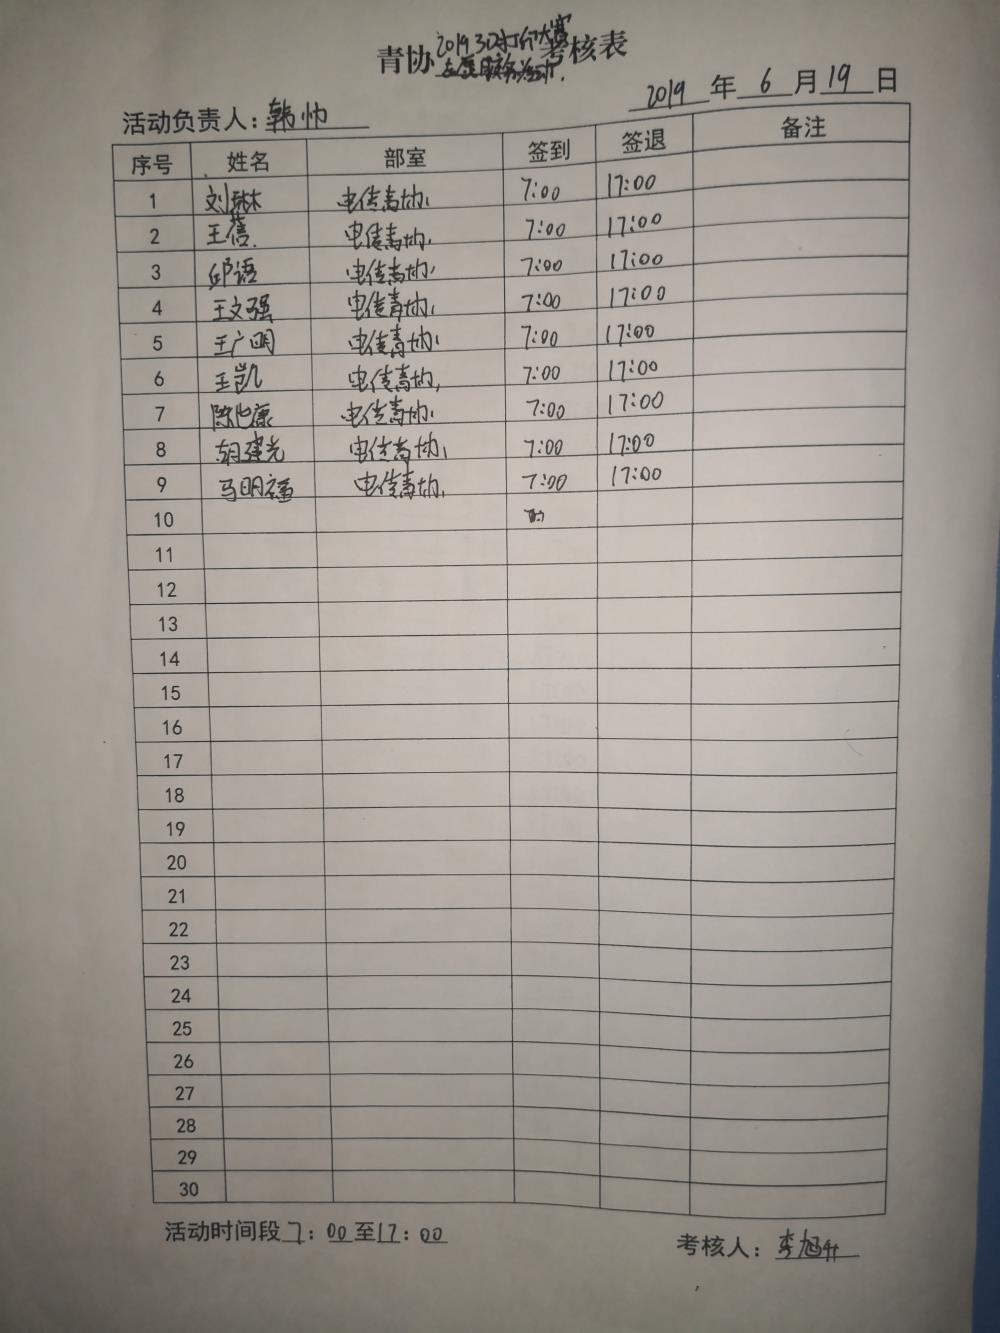 青协2019 3D打印大赛志愿服务活动考核表
2019年6月19日
活动负责人：韩帅
序号 姓名 部室 签到 签退 备注
1 刘琳 电信青协 7:00 17:00
2 王蓓 电信青协 7:00 17:00
3 邱语 电信青协 7:00 17:00
4 王文强 电信青协 7:00 17:00
5 王广明 电信青协 7:00 17:00
6 王凯 电信青协 7:00 17:00
7 陈 康 电信青协 7:00 17:00
8 胡建光 电信青协 7:00 17:00
9 马明福 电信青协 7:00 17:00
10
11
12
13
14
15
16
17
18
19
20
21
22
23
24
25
26
27
28
29
30
活动时间段7：00至17：00
考核人：李旭